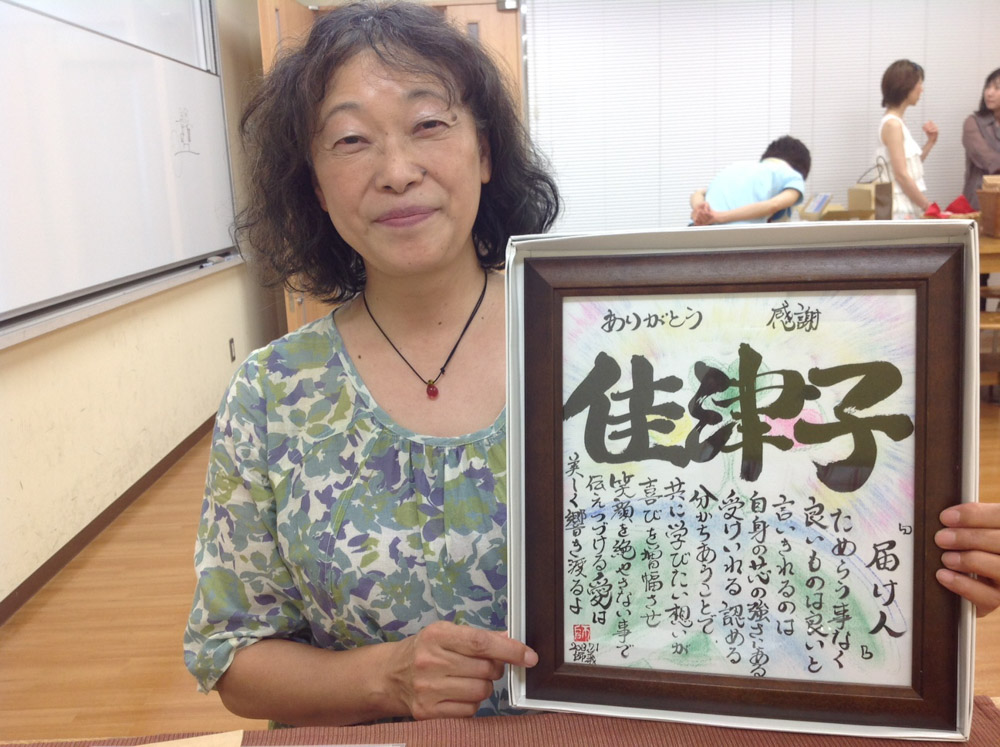 ありがとう 感謝
佳津子
「届け人」
ためらう事なく
良いものは良いと
言いきれるのは
自身の芯の強さある
受けいれる 認める
分かちあうことで
共に学びたい想いが
喜びを増幅させ
笑顔を絶やさない事で
伝えつづける愛は
美しく響き渡るよ